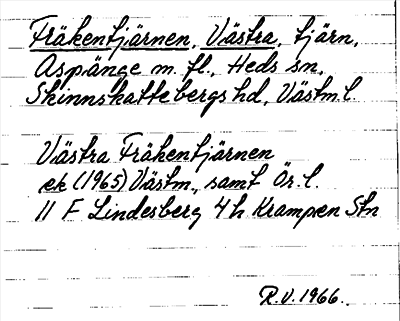 Fräkentjärnen, Västra, tjärn,
Aspänge m. fl., Heds sn,
Skinnskattebergs hd, Västm.l.
Västra Fräkentjärnen
ek (1965) Västm., samt Ör.l.
11 F Lindesberg 4h Krampen Stn
R.V. 1966.